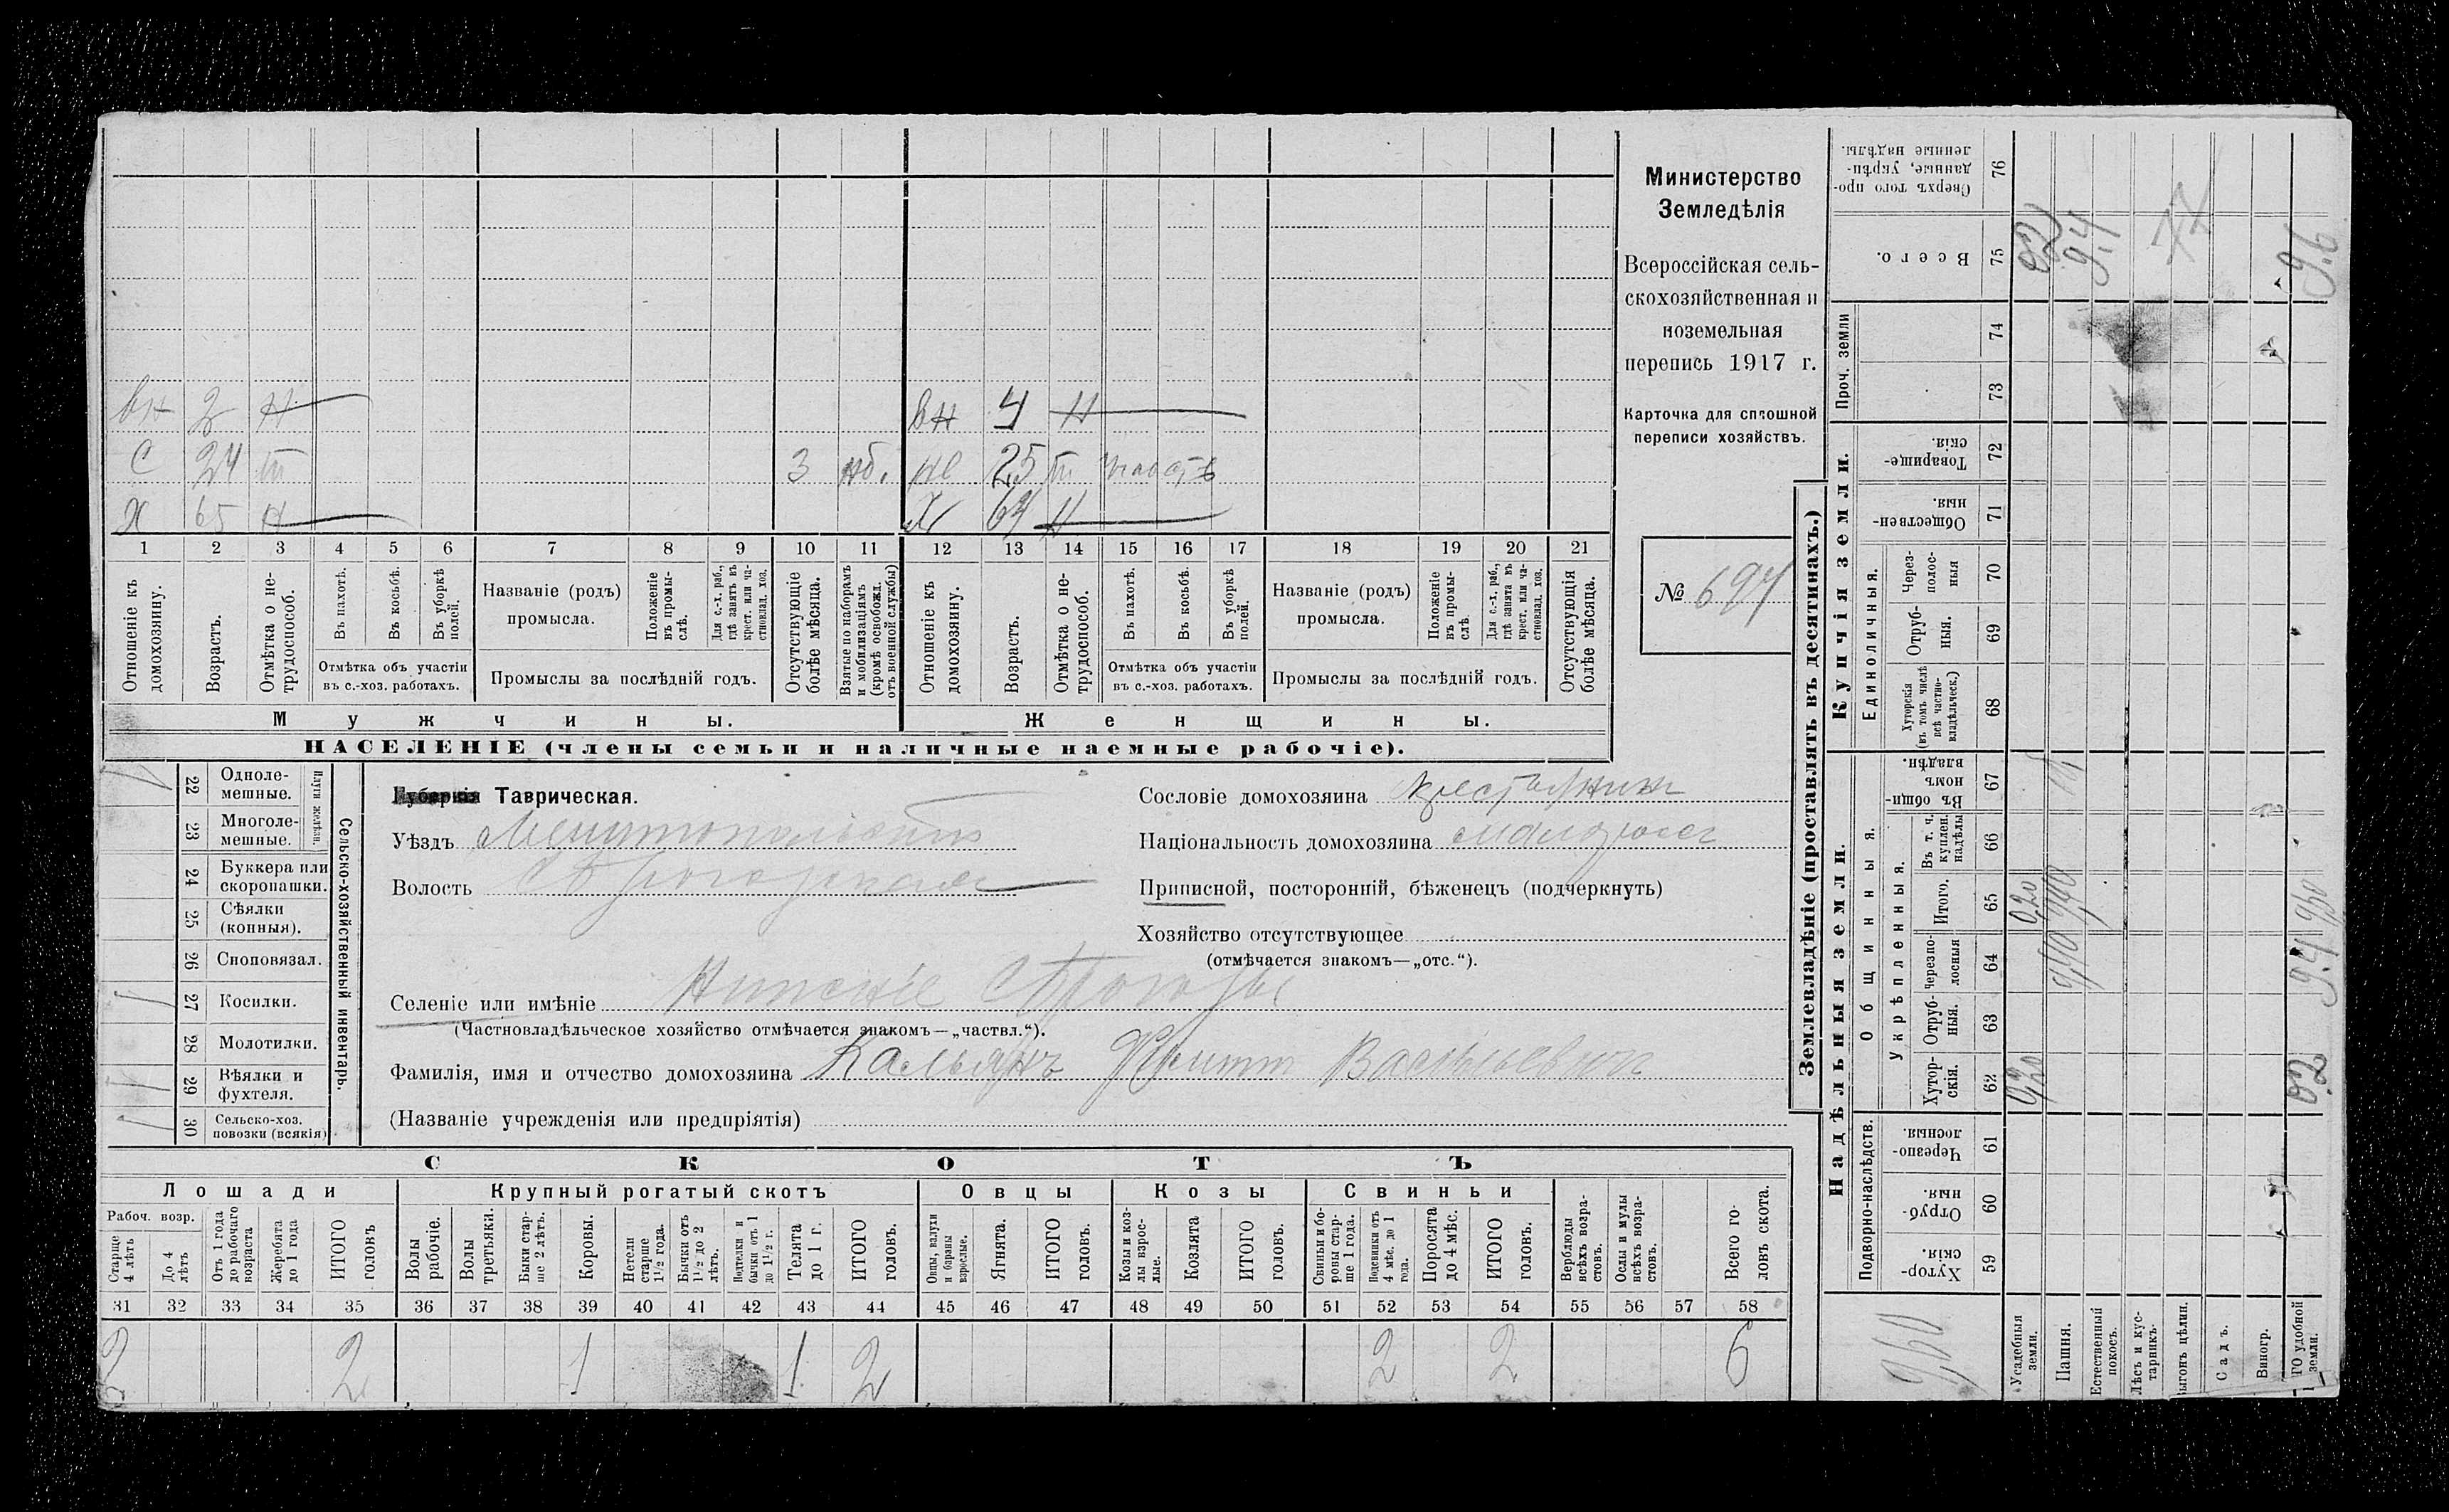 вн 2 н вн 4 н
С 24 т 3 нб. не 25 т
Х 65 н Х 64 н
1 2 3 4 5 6 7 8 9 10 11 12 13 14 15 16 17 18 19 20 21
Отношеніе къ домохозяину.
Возрастъ.
Отмѣтка о не-
трудоспособ.
Въ пахотѣ.
Въ косьбѣ.
Въ уборкѣ полей.
Отмѣтка объ участіи
въ с.-хоз. работахъ.
Названіе (родъ)
промысла.
Положеніе въ промы-
слѣ.
Для с.-х. раб., гдѣ занятъ въ крест. или ча-
стновлад. хоз.
Промыслы за послѣдній годъ.
Отсутствующіе болѣе мѣсяца.
Взятые по наборамъ и мобилизаціямъ (кромѣ освобожд. отъ военной службы)
Отношеніе къ домохозяину.
Возрастъ.
Отмѣтка о не-
трудоспособ.
Въ пахотѣ.
Въ косьбѣ.
Въ уборкѣ полей.
Отмѣтка объ участіи
въ с.-хоз. работахъ.
Названіе (родъ)
промысла.
Положеніе въ промы-
слѣ.
Для с.-х. раб., гдѣ занята въ крест. или ча-
стновлад. хоз.
Промыслы за послѣдній годъ.
Отсутствующія болѣе мѣсяца.
Мужчины.
Женщины.
НАСЕЛЕНІЕ (члены семьи и наличные наемные рабочіе).
Министерство
Земледѣлія
Всероссійская сель-
скохозяйственная и
поземельная
перепись 1917 г.
Карточка для сплошной
переписи хозяйствъ.
№ 697
22 Одноле-
мешные.
23 Многоле-
мешные.
Плуги желѣзн.
24 Буккера или
скоропашки.
25 Сѣялки
(конныя).
26 Сноповязал.
27 Косилки. 1
28 Молотилки.
29 Вѣялки и
фухтеля. 1
30 Сельско-хоз.
повозки (всякія) 1
Сельско-хозяйственный инвентарь.
Губернія Таврическая.
Уѣздъ Мелитопольскій
Волость Сѣрогозская
Сословіе домохозяина крестьянинъ
Національность домохозяина малороссъ
Приписной, посторонній, бѣженецъ (подчеркнуть)
Хозяйство отсутствующее
(отмѣчается знакомъ—„отс.“).
Селеніе или имѣніе Нижніе Сѣрогозы
(Частновладѣльческое хозяйство отмѣчается знакомъ—„частвл.“).
Фамилія, имя и отчество домохозяина Касьянъ Филиппъ Васильевичъ
(Названіе учрежденія или предпріятія)
СКОТЪ
Лошади
Крупный рогатый скотъ
Овцы
Козы
Свиньи
Рабоч. возр.
Старше 4 лѣтъ
До 4 лѣтъ
Отъ 1 года до рабочаго возраста
Жеребята до 1 года
ИТОГО головъ
Волы рабочіе.
Волы третьяки.
Быки стар-
ше 2 лѣтъ.
Коровы.
Нетели старше 1½ года.
Бычки отъ 1½ до 2 лѣтъ.
Подтелки и бычки отъ 1 до 1½ г.
Телята до 1 г.
ИТОГО головъ.
Овцы, валухи и бараны взрослые.
Ягнята.
ИТОГО головъ.
Козы и коз-
лы взрос-
лые.
Козлята
ИТОГО головъ.
Свиньи и бо-
ровы стар-
ше 1 года.
Подсвинки отъ 4 мѣс. до 1 года.
Поросята до 4 мѣс.
ИТОГО головъ.
Верблюды всѣхъ возра-
стовъ.
Ослы и мулы всѣхъ возра-
стовъ.
Всего го-
ловъ скота.
31 32 33 34 35 36 37 38 39 40 41 42 43 44 45 46 47 48 49 50 51 52 53 54 55 56 57 58
2 2 1 1 2 2 2 6
Землевладѣніе (проставлять въ десятинахъ.)
Купчія земли.
Надѣльныя земли.
Сверхъ того про-
данные, укрѣп-
ленные надѣлы. 76
Всего. 75 9.4 77 9.6
Проч. земли 74 73
Товарище-
скія. 72
Обществен-
ныя. 71
Единоличныя.
Через-
полос-
ныя 70
Отруб-
ныя. 69
Хуторскія (въ томъ числѣ всѣ частно-
владѣльческ.) 68
Общинныя.
Въ общи-
номъ владѣн. 67
Укрѣпленныя.
Въ т. ч. куплен. надѣлы 66
Итого. 65 0,20 9,40
Черезпо-
лосныя 64 9,40 9.4
Отруб-
ныя. 63
Хутор-
скія. 62 0,20 0.2
Подворно-наслѣдств.
Черезпо-
лосныя. 61
Отруб-
ныя. 60
Хутор-
скія. 59
9,60
Усадебныя земли.
Пашня.
Естественный покосъ.
Лѣсъ и кус-
тарникъ.
Выгонъ цѣлин.
Садъ.
Виногр.
ИТОГО удобной земли.